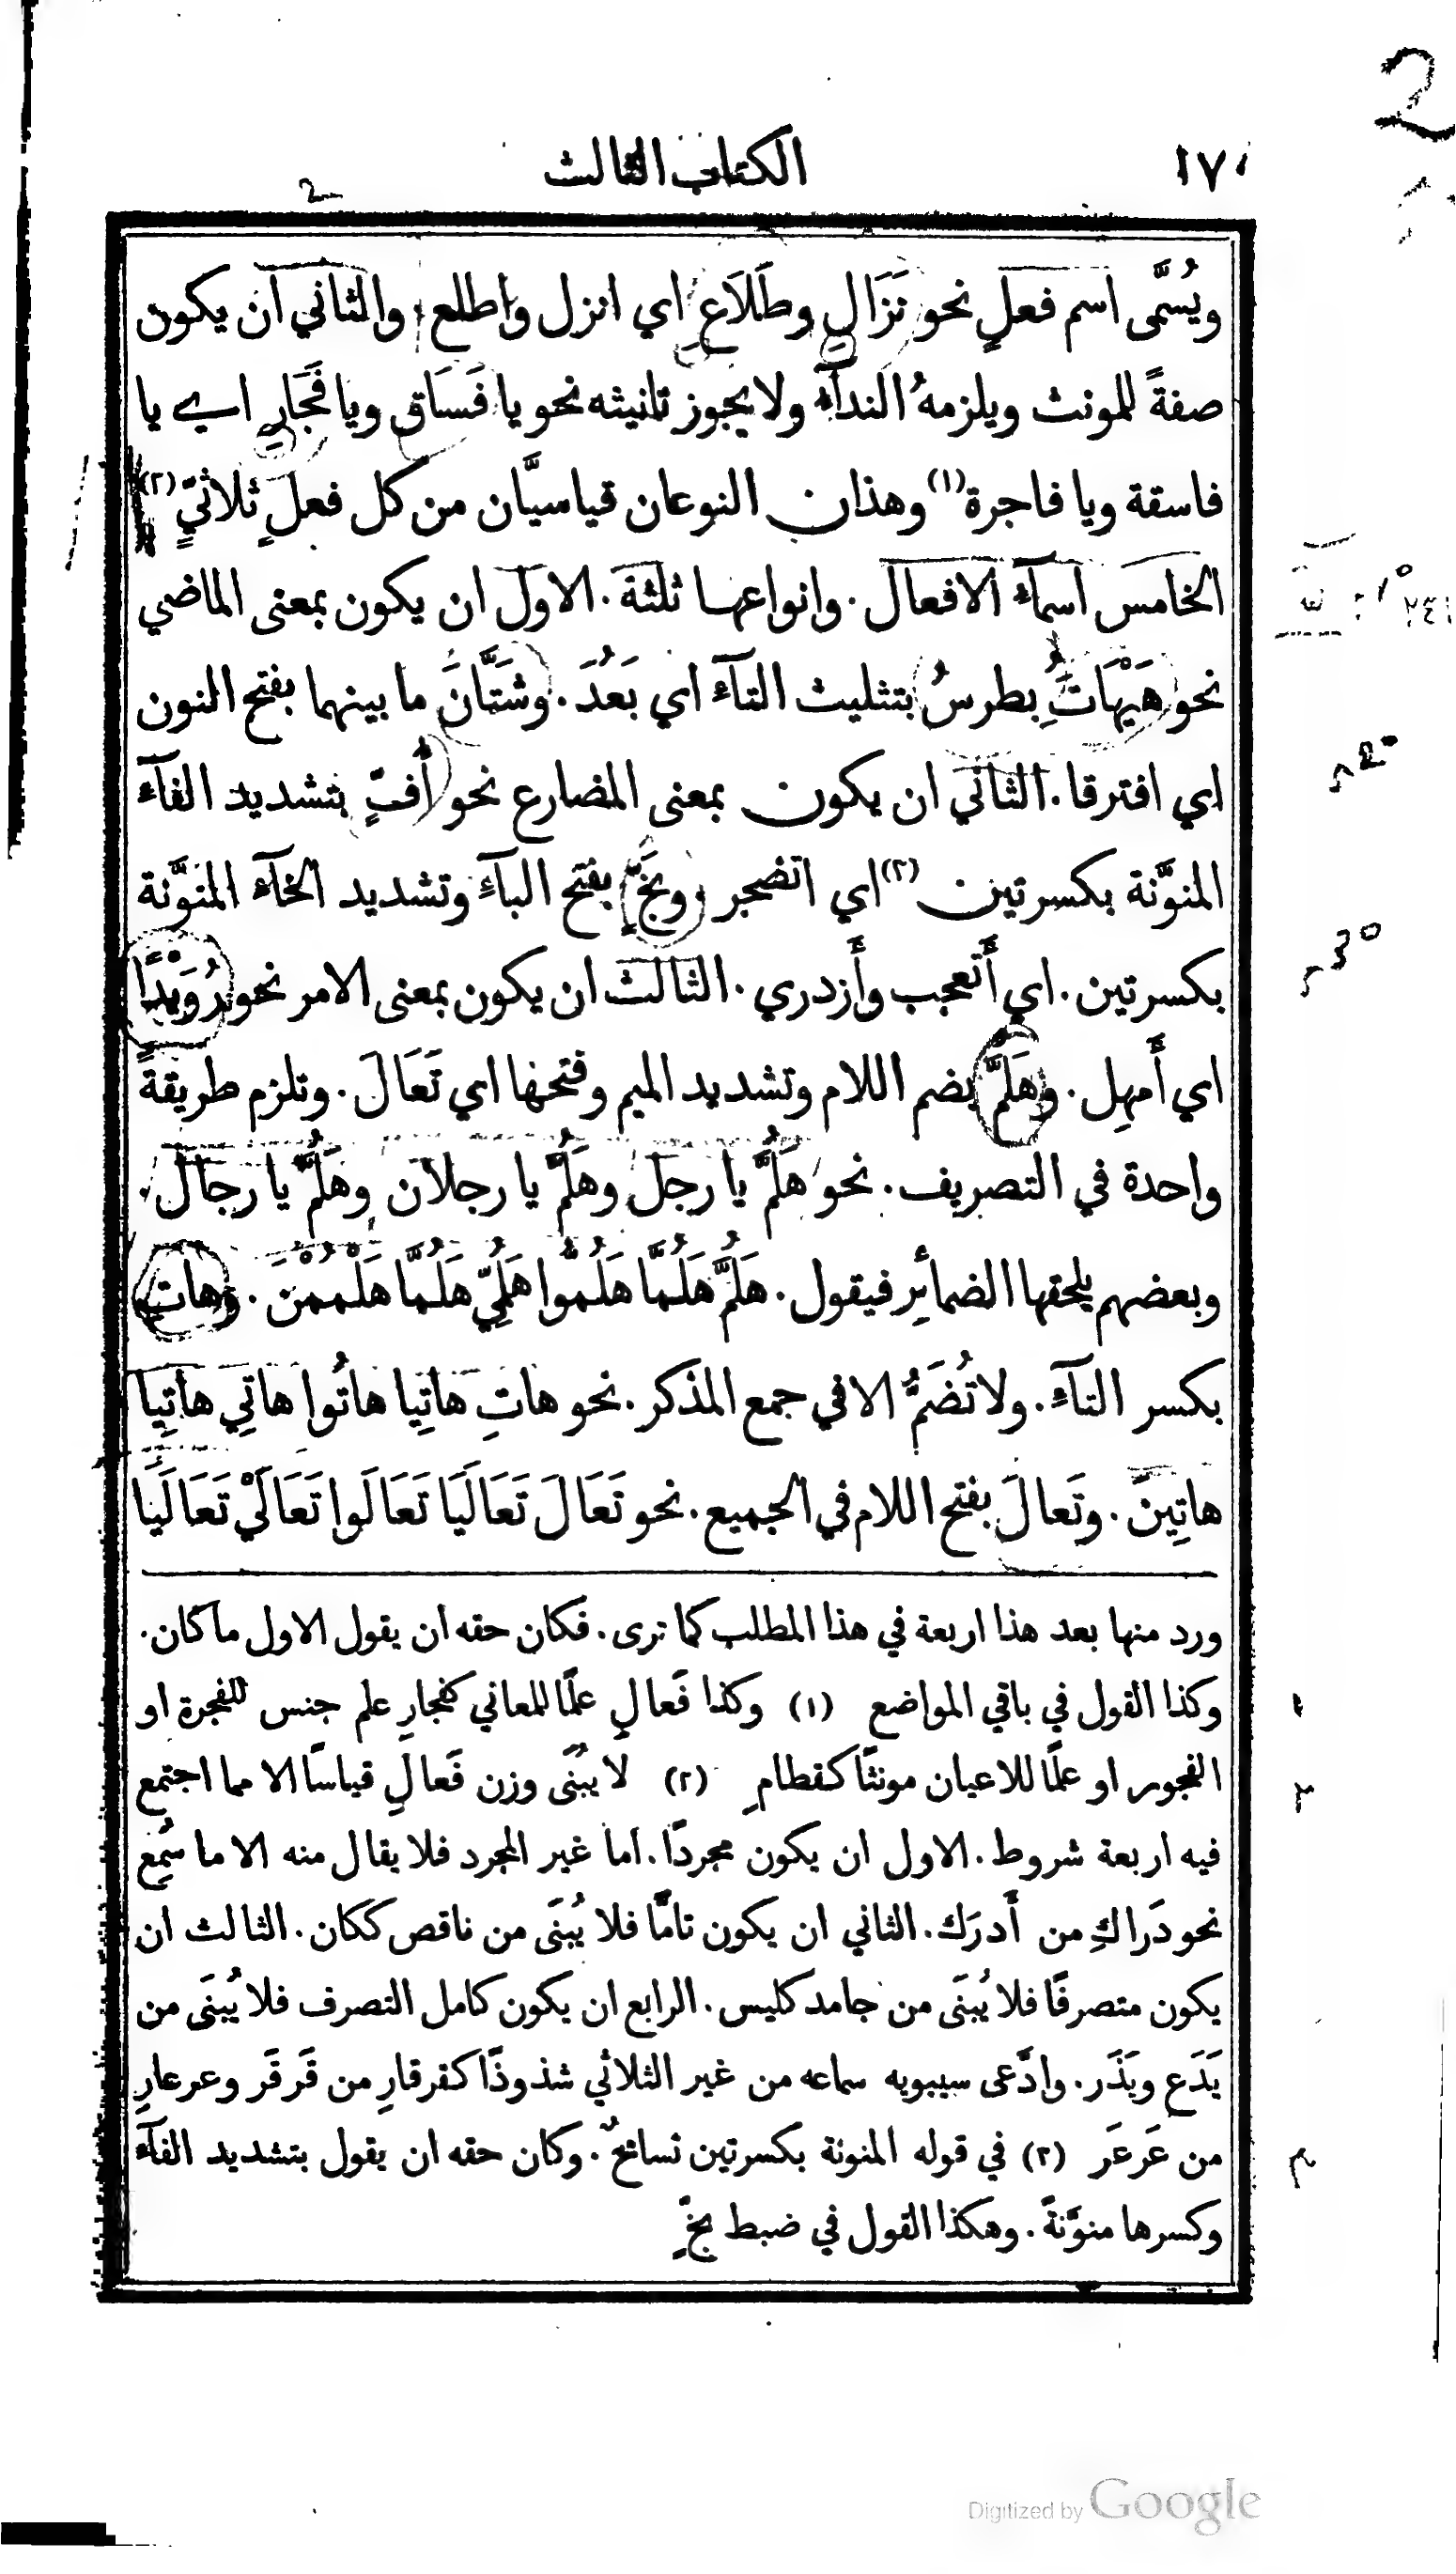 ١٧٠ الكتاب الثالث
ويُسَّمى اسم فعلٍ نحو نَزَالِ وطَلَاعِ اي انزل واطلع. والثاني ان يكون
صفةً للمونث ويلزمهُ الندآء ولا يجوز تانيثه نحو يا فَسَاقِ ويا فَجَارِ اي يا
فاسقة ويا فاجرة (١) وهذان النوعان قياسيَّان من كل فعلٍ ثلاثيٍّ (٢)
الخامس اسمآء الافعال. وانواعها ثلثة. الاول ان يكون بمعنى الماضي
نحو هَيْهَاتَُِ بطرسُ بتثليث التآء اي بَعُدَ. وشَتَّانَ ما بينهما بفتح النون
اي افترقا. الثاني ان يكون بمعنى المضارع نحو أُفٍّ بتشديد الفآء
المنوَّنة بكسرتين (٣) اي اتضجر وبَخٍّ بفتح البآء وتشديد الخآء المنوَّنة
بكسرتين. اي أَتعجب وأَزدري. الثالث ان يكون بمعنى الامر نحو رُوَيْدًا
اي أَمهِل. وهَلُمَّ بضم اللام وتشديد الميم وفتحها اي تَعَالَ. وتلزم طريقةً
واحدة في التصريف. نحو هَلُمَّ يا رجل وهَلُمَّ يا رجلان وهَلُمَّ يا رجال.
وبعضهم يلحقها الضمائِر فيقول. هَلُمَّ هَلُمَّا هَلُمُّوا هَلُمِّي هَلُمَّا هَلْمُمْنَ. وهاتِ
بكسر التآءِ. ولا تُضَمُّ الا في جمع المذكر. نحو هاتِ هاتِيا هاتُوا هاتِي هاتِيا
هاتِينَ. وتَعالَ بفتح اللام في الجميع. نحو تَعَالَ تَعَالَيَا تَعَالَوا تَعَالَيْ تَعَالَيَا
ورد منها بعد هذا اربعة في هذا المطلب كما ترى. فكان حقه ان يقول الاول ما كان.
وكذا القول في باقي المواضع (١) وكذا فَعالِ علمًا للمعاني كفجارِ علم جنس للفجرة او
الفجور او علمًا للاعيان مونثًا كقطامِ (٢) لا يُبنَى وزن فَعالِ قياسًا الا مما اجتمع
فيه اربعة شروط. الاول ان يكون مجردًا. اما غير المجرد فلا يقال منه الا ما سُمِع
نحو دَراكِ من أَدرَك. الثاني ان يكون تامًّا فلا يُبنَى من ناقص ككان. الثالث ان
يكون متصرفًا فلا يُبنَى من جامد كليس. الرابع ان يكون كامل التصرف فلا يُبنَى من
يَدَع ويَذَر. وادَّعى سيبويه سماعه من غير الثلاثي شذوذًا كقرقارِ من قَرقَر وعرعارِ
من عَرعَر (٣) في قوله المنونة بكسرتين تسامحٌ. وكان حقه ان يقول بتشديد الفآء
وكسرها منوَّنةً. وهكذا القول في ضبط بخٍّ
Digitized by Google